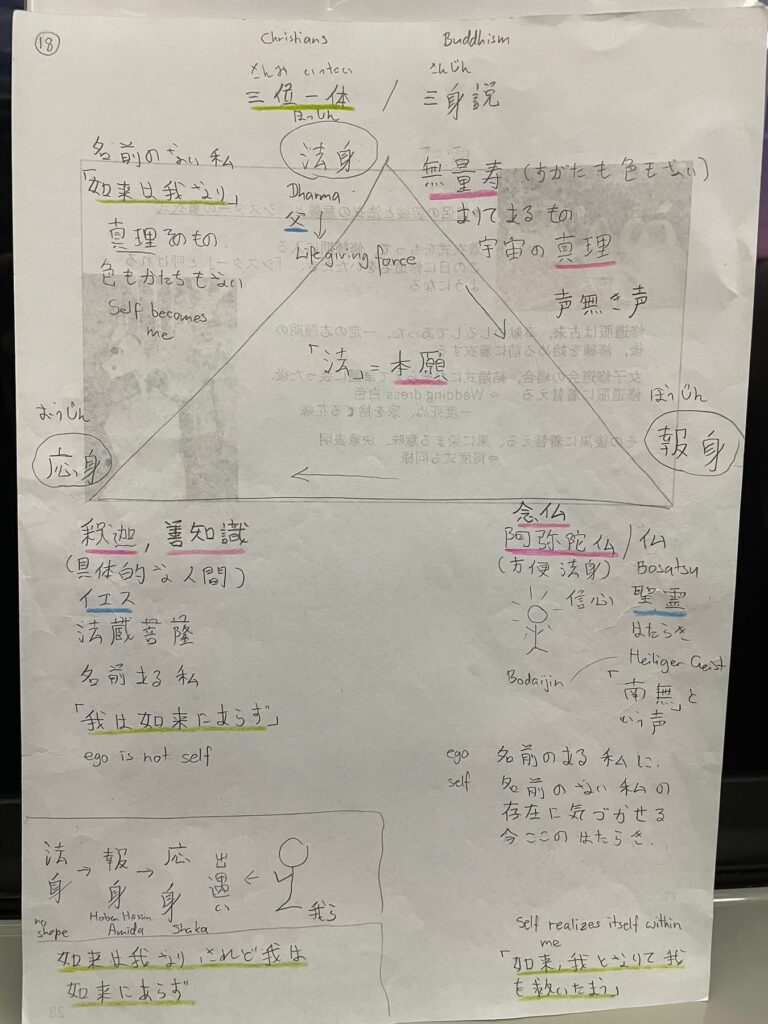 18
Christians
Buddhism
さんみ いったい
さんじん
三位一体 / 三身説
ほっしん
法身
名前のない私
「如来は我なり」
真理そのもの
色もかたちもない
Self becomes
me
Dharma
父
Life giving force
無量寿 (すがたも色もない)
まりてあるもの
宇宙の真理
声無き声
「法」=本願
おうじん
応身
ほうじん
報身
釈迦, 善知識
(具体的な人間)
イエス
法蔵菩薩
名前ある私
「我は如来にあらず」
ego is not self
念仏
阿弥陀仏 / 仏
(方便法身)
信心
Bosatsu
聖霊
はたらき
Heiliger Geist
Bodaijin
「南無」と
いう声
ego 名前のある私に、
self 名前のない私の
存在に気づかせる
今ここのはたらき.
法身 → 報身 → 応身 出遇い ← 我ら
no shape
Hoben Hossin
Amida
Shaka
如来は我なり されど我は
如来にあらず
Self realizes itself within
me
「如来, 我となりて我
を救いたまう」